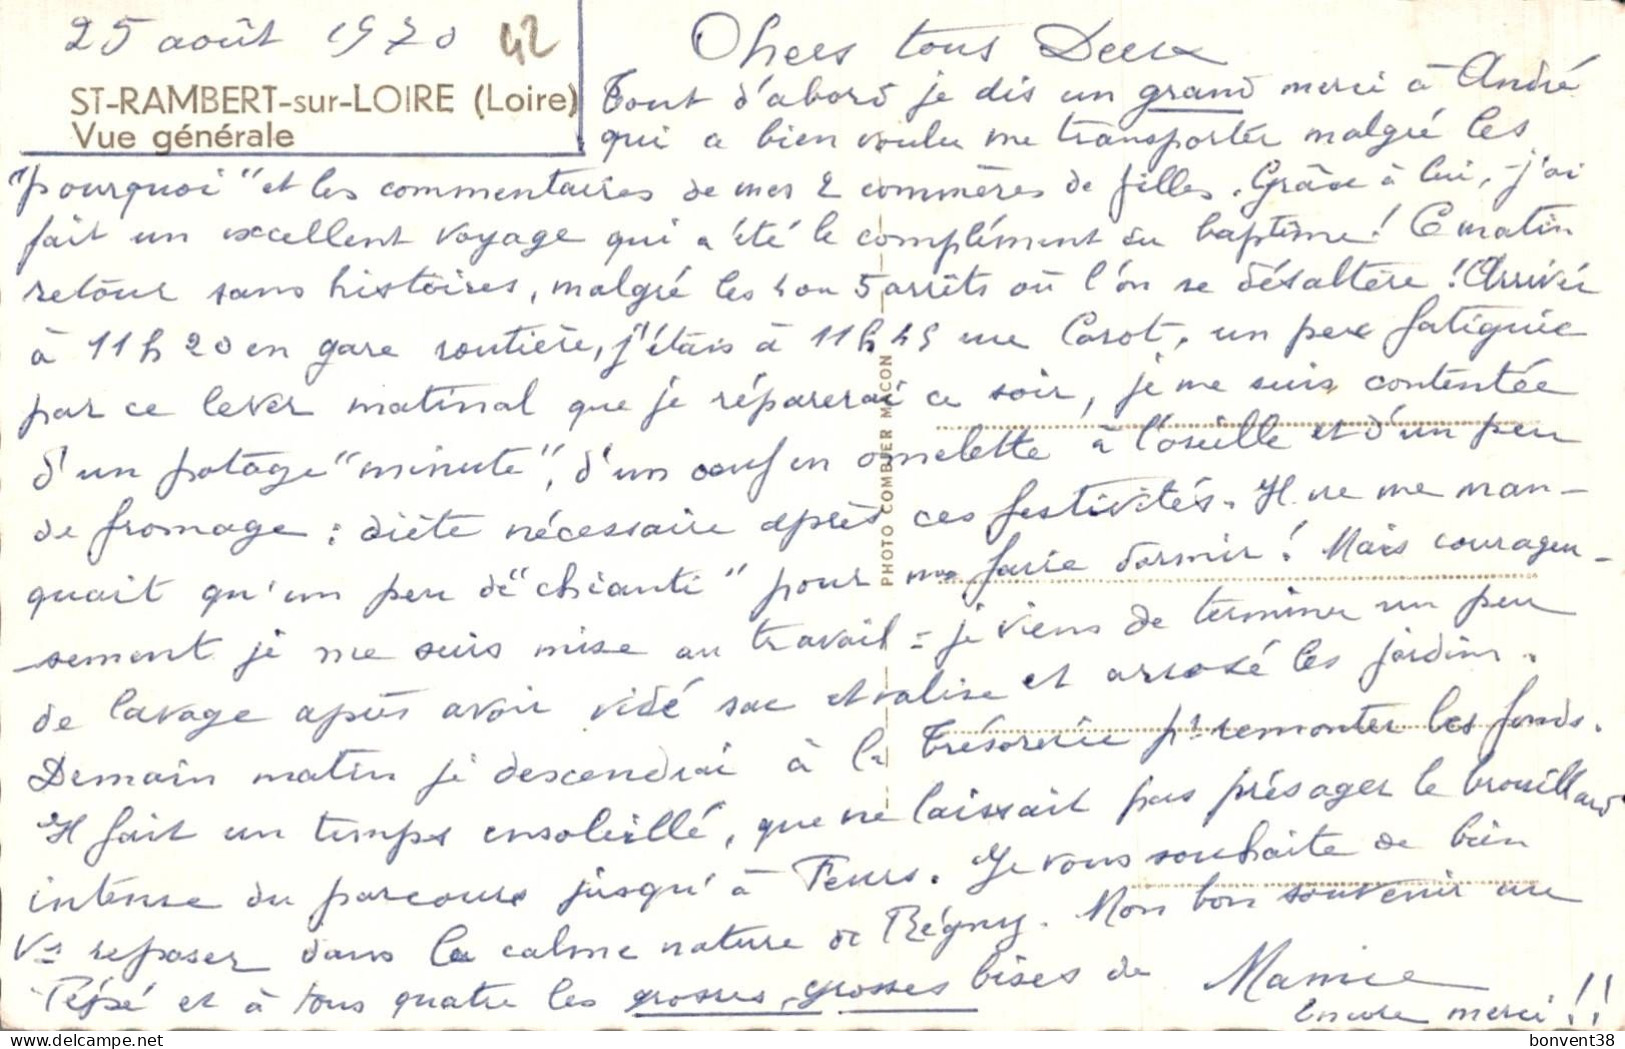 25 août 1970 42
ST-RAMBERT-sur-LOIRE (Loire)
Vue générale
Chers tous Deux
Tout d'abord je dis un grand merci à André
qui a bien voulu me transporter malgré les
"pourquoi" et les commentaires de mes 2 commères de filles. Grâce à lui, j'ai
fait un excellent voyage qui a été le complément du baptême! Ce matin
retour sans histoires, malgré les 4 ou 5 arrêts où l'on se désaltère! Arrivée
à 11 h 20 en gare routière, j'étais à 11 h 45 rue Corot, un peu fatiguée
par ce lever matinal que je réparerai ce soir, je me suis contentée
d'un potage "minute", d'un oeuf en omelette à l'oseille et d'un peu
de fromage : diète nécessaire après ces festivités. Il ne me man-
quait qu'un peu de "chianti" pour me faire dormir! Mais courageu-
sement je me suis mise au travail = je viens de terminer un peu
de lavage après avoir vidé sac et valise et arrosé les jardins.
Demain matin je descendrai à la Trésorerie pr remonter les fonds.
Il fait un temps ensoleillé, que ne laissait pas présager le brouillard
intense du parcours jusqu'à Feurs. Je vous souhaite de bien
vs reposer dans la calme nature de Régny. Mon bon souvenir au
Pépé et à tous quatre les grosses, grosses bises de Mamie
Encore merci!!
PHOTO COMBIER MACON
bonvent38